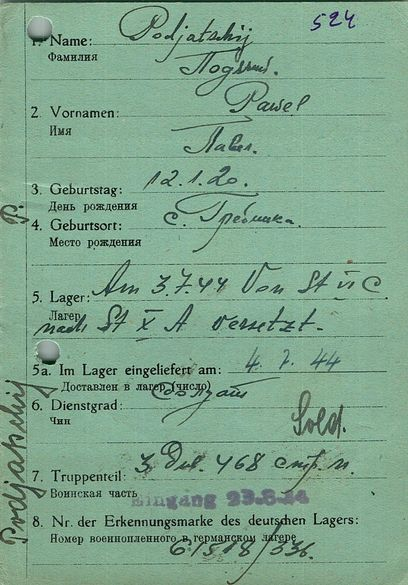 524
1. Name: Podjatschij
Фамилия
2. Vornamen: Pawel
Имя
Павел.
3. Geburtstag: 12.1.20.
День рождения
4. Geburtsort: с. Гребинка.
Место рождения
5. Lager: Am 3.7.44 von St VI C
Лагер
nach St X A versetzt.
5a. Im Lager eingeliefert am: 4. 7. 44
Доставлен в лагер (число)
6. Dienstgrad: Солдат
Чин
Sold.
7. Truppenteil: 3 Див. 468 стр. п.
Воинская часть
Eingang 23.8.44
8. Nr. der Erkennungsmarke des deutschen Lagers:
Номер военнопленного в германском лагере
P.
Podjatschij